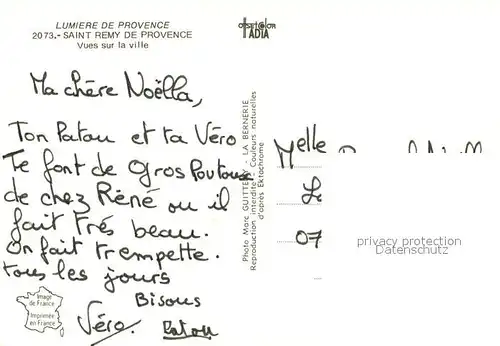 LUMIERE DE PROVENCE
2073.- SAINT REMY DE PROVENCE
Vues sur la ville
offset color
iADIA
Ma chère Noëlla,
Ton Patou et ta Véro
Te font de gros Poutoux
de chez Réné ou il
fait Trés beau.
On fait trempette.
tous les jours
Bisous
Véro. Patou
Image
de France
Imprimée
en France
Photo Marc GUITTENY - LA BERNERIE
Reproduction interdite - Couleurs naturelles
d'après Ektachrome
Melle
Le
07
privacy protection
Datenschutz